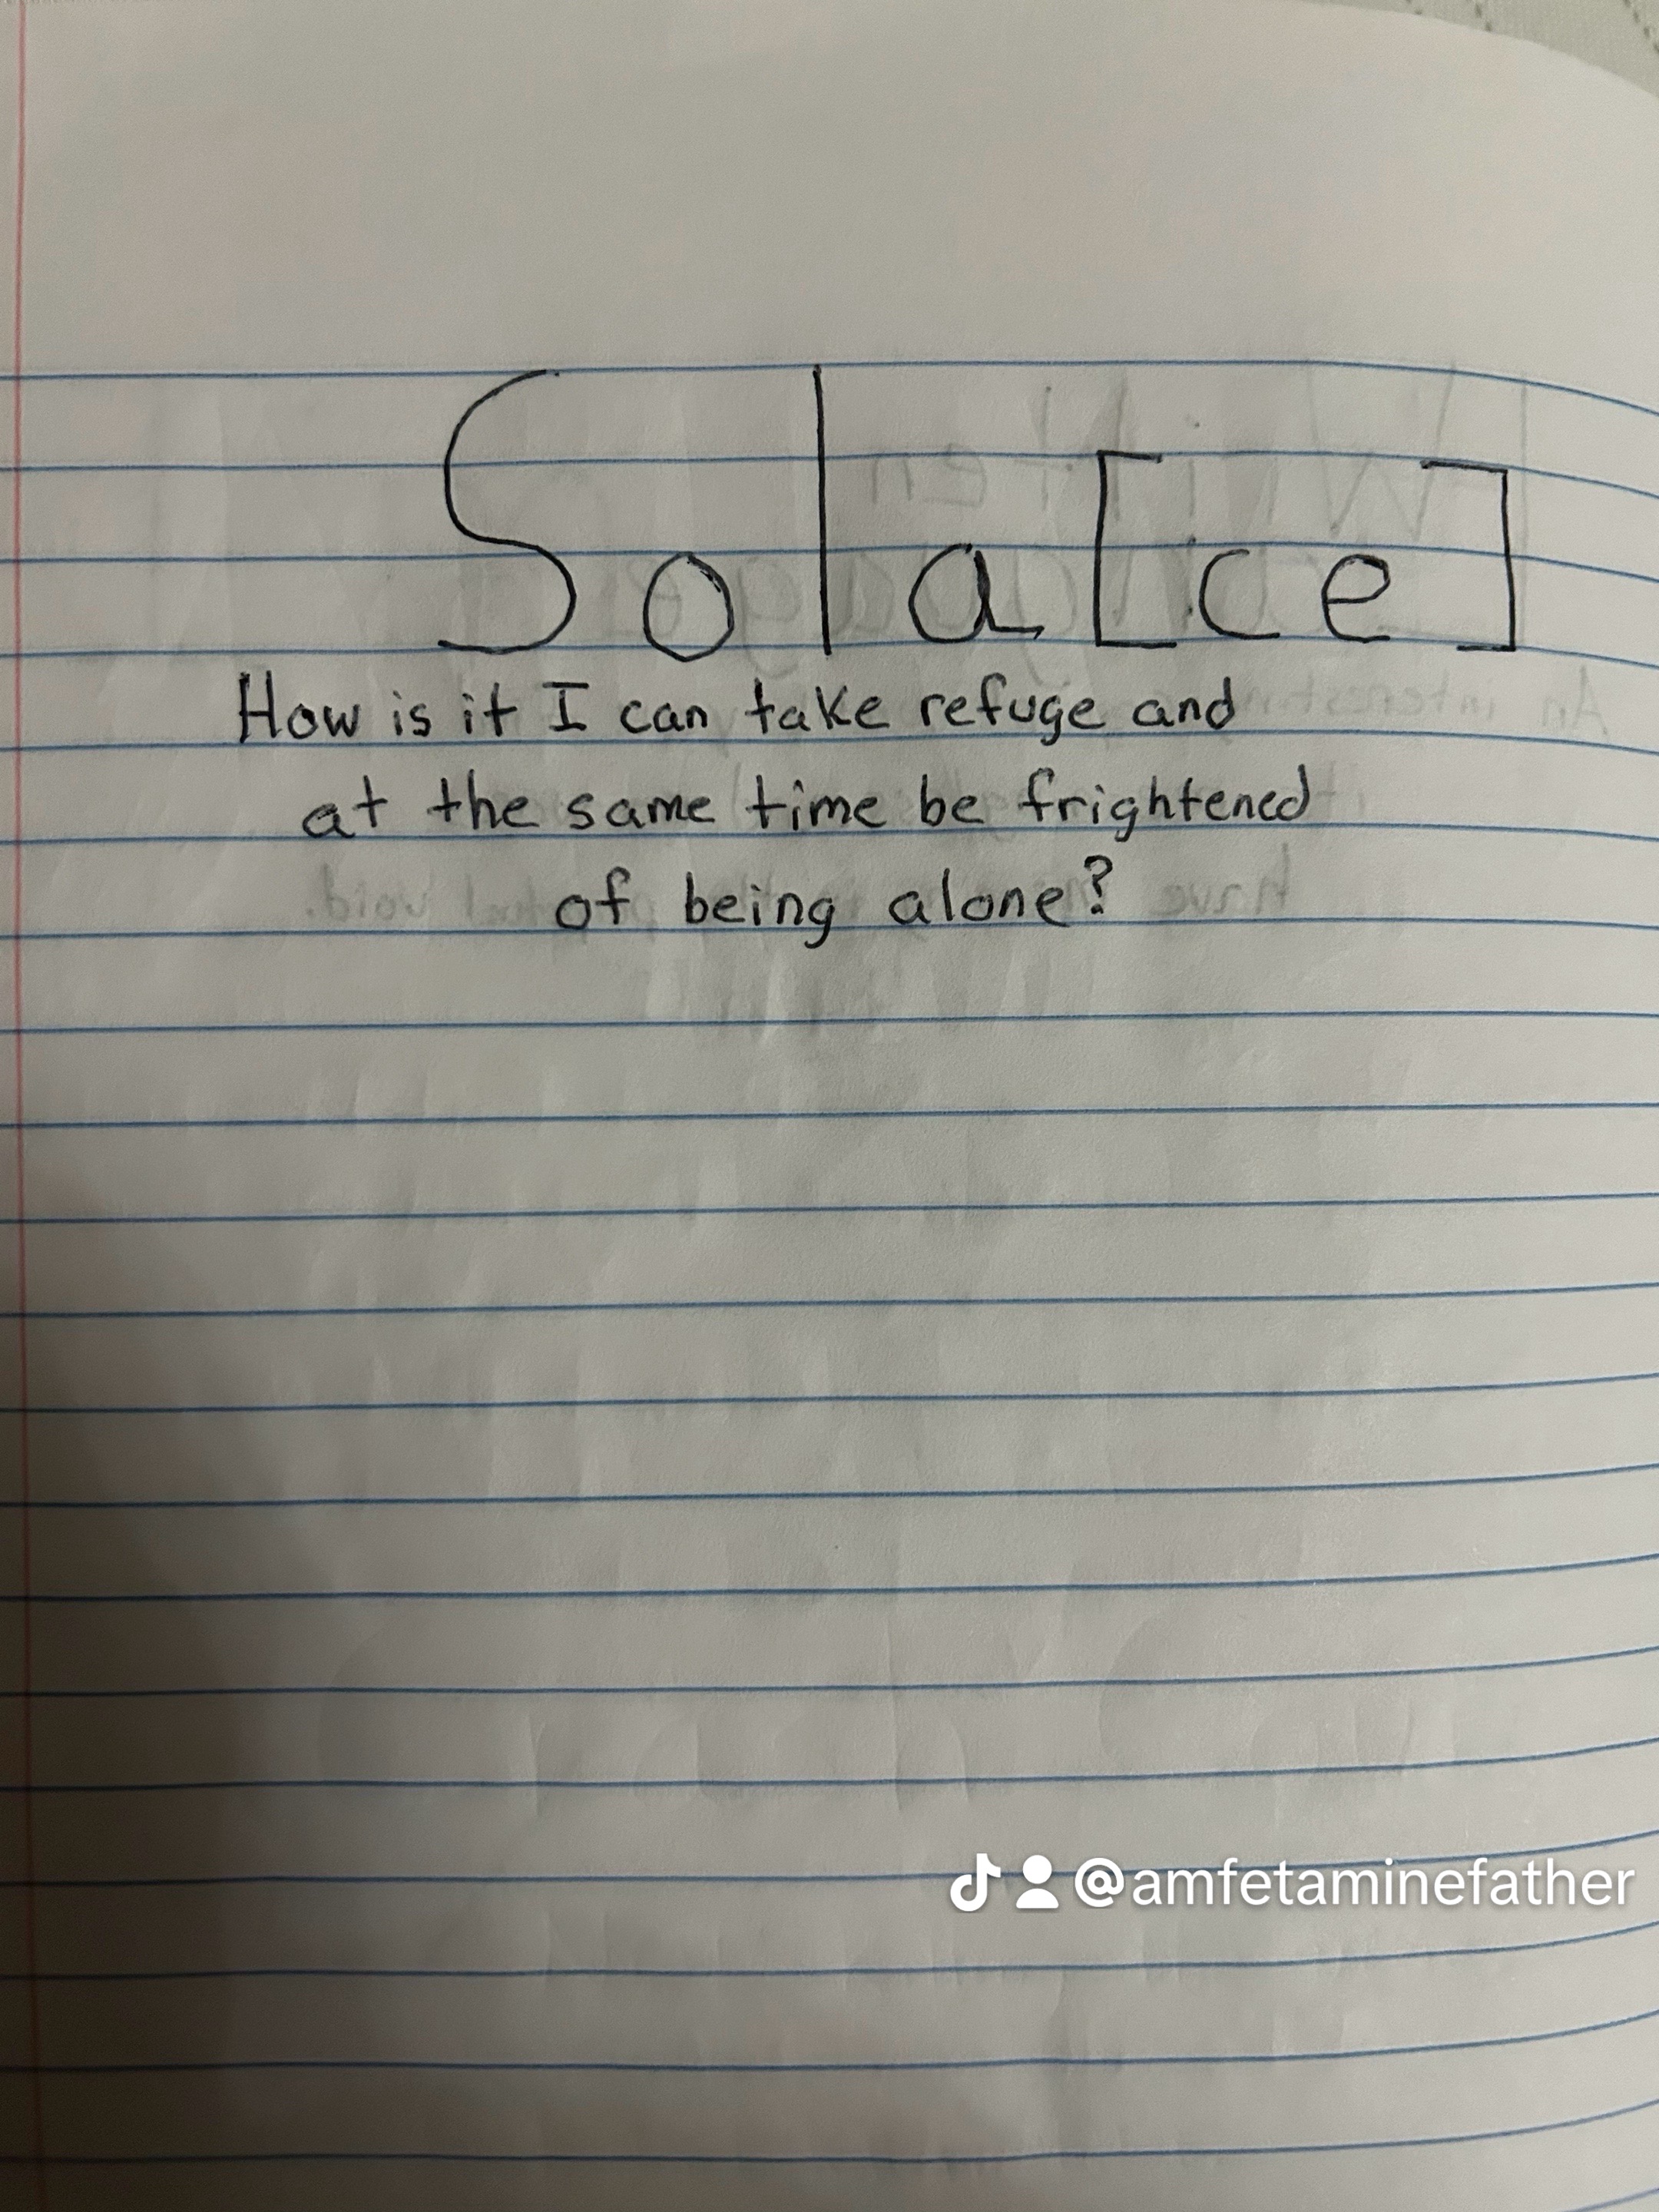 Sola[ce]
How is it I can take refuge and
at the same time be frightened
of being alone?
@amfetaminefather